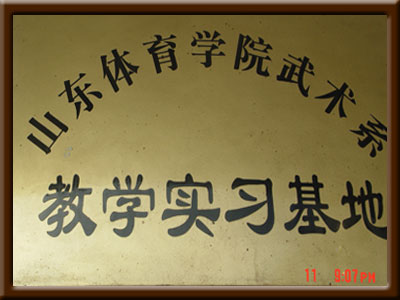 山东体育学院武术系
教学实习基地
11 9:07PM